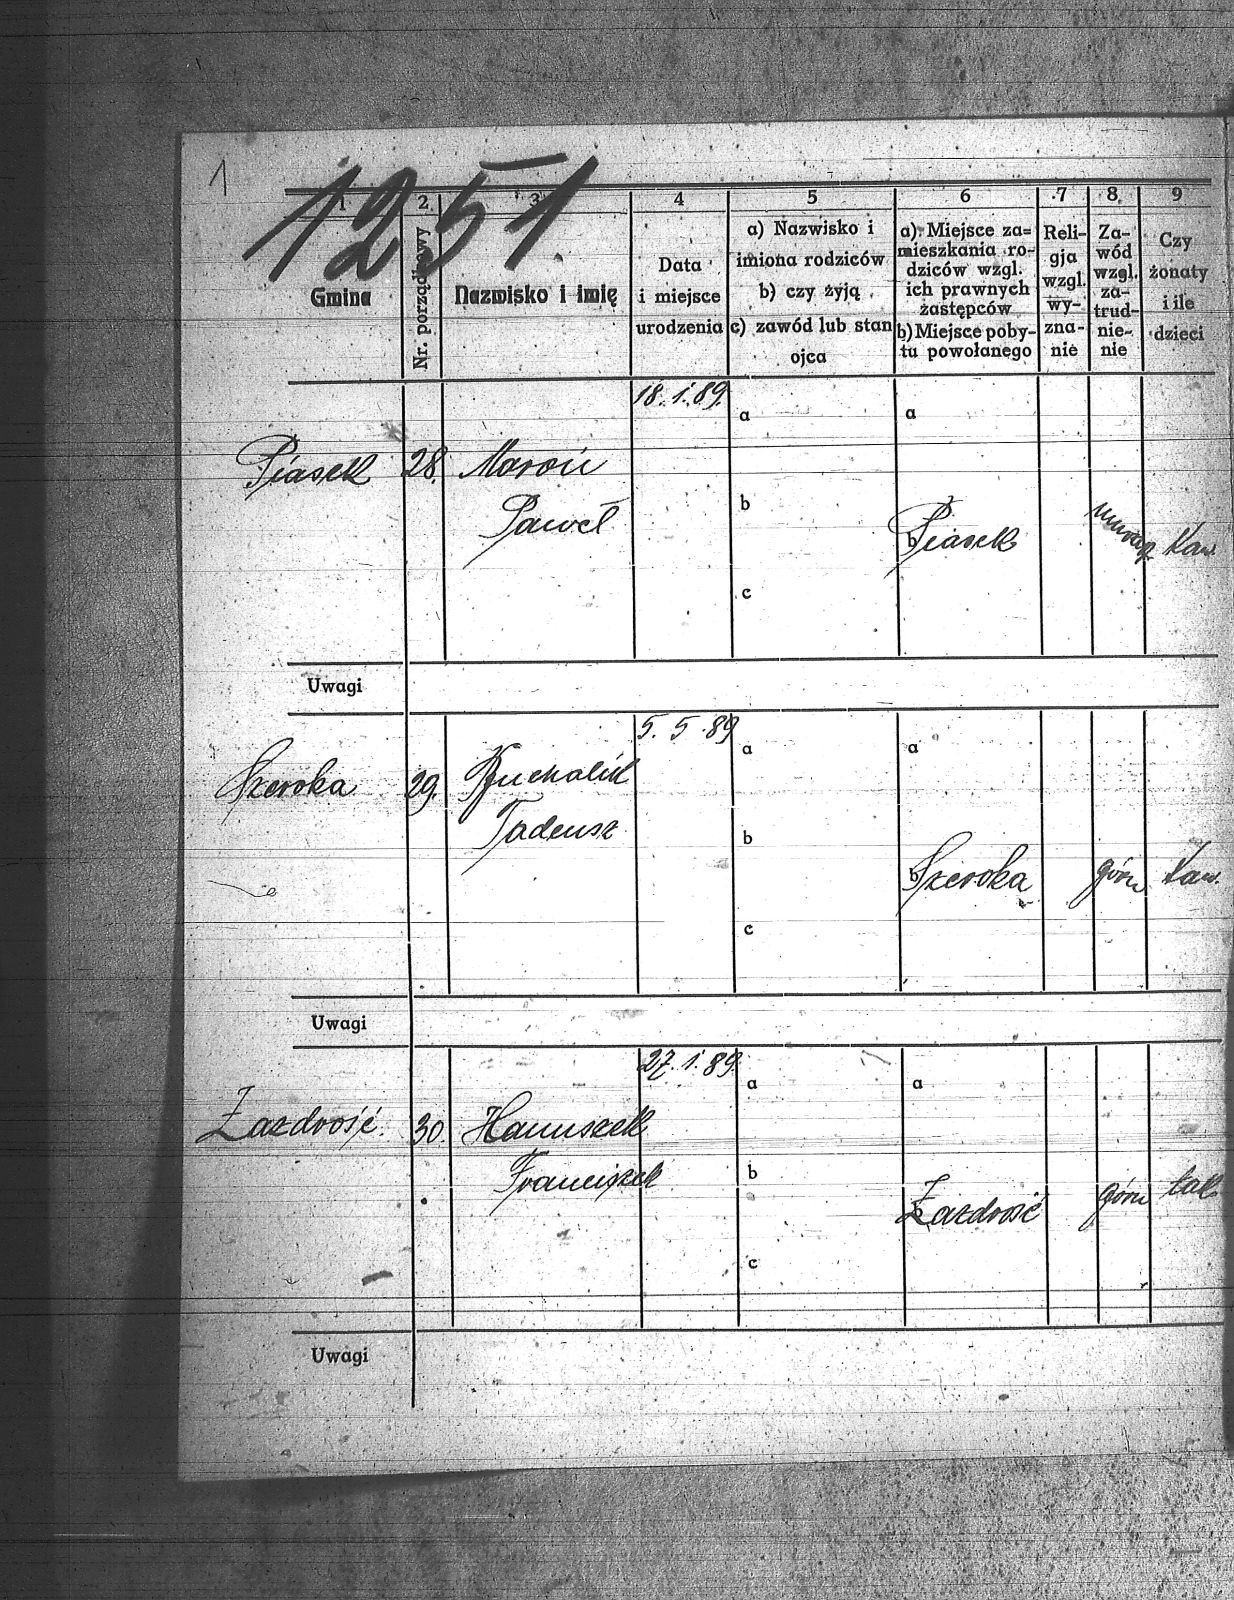 1
1251
1 2 3 4 5 6 7 8 9
Gmina
Nr. porządkowy
Nazwisko i imię
Data
i miejsce
urodzenia
a) Nazwisko i
imiona rodziców
b) czy żyją
c) zawód lub stan
ojca
a) Miejsce za=
mieszkania ro-
dziców wzgl.
ich prawnych
zastępców
b) Miejsce poby-
tu powołanego
Reli-
gja
wzgl.
wy-
zna-
nie
Za-
wód
wzgl.
za-
trud-
nie-
nie
Czy
żonaty
i ile
dzieci
18. 1. 89.
a a
Piasek 28. Maroń
Paweł
b
b Piasek
murarz Kaw.
c
Uwagi
5. 5. 89
a a
Szeroka 29. Puchalik
Tadeusz
b
b Szeroka górn Kaw.
c
Uwagi
27. 1. 89.
a a
Zazdrość. 30. Hanuszek
Franciszek
b
b Zazdrość górn tak
c
Uwagi